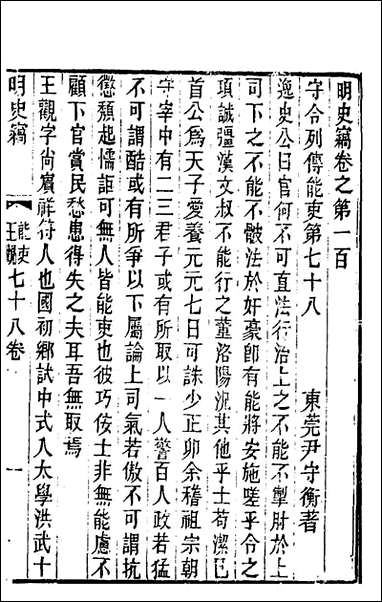 明史竊卷之第一百
東莞尹守衡著
守令列傳能吏第七十八
逸史公曰官何不可直法行治上之不能不掣肘於上
司下之不能不骫法於奸豪卽有能將安施嗟乎令之
項誠彊漢文叔不能行之董洛陽況其他乎士苟潔已
首公爲天子愛養元元七日可誅少正卯余稽祖宗朝
守宰中有二三君子或有所取以一人警百人政若猛
不可謂酷或有所爭以下屬論上司氣若傲不可謂抗
懲頽起懦詎可無人皆能吏也彼巧佞士非無能慮不
顧下官賞民愁患得失之夫耳吾無取焉
王觀字尙賓祥符人也國初鄉試中式入太學洪武十
明史竊
能吏
王觀
七十八卷
一